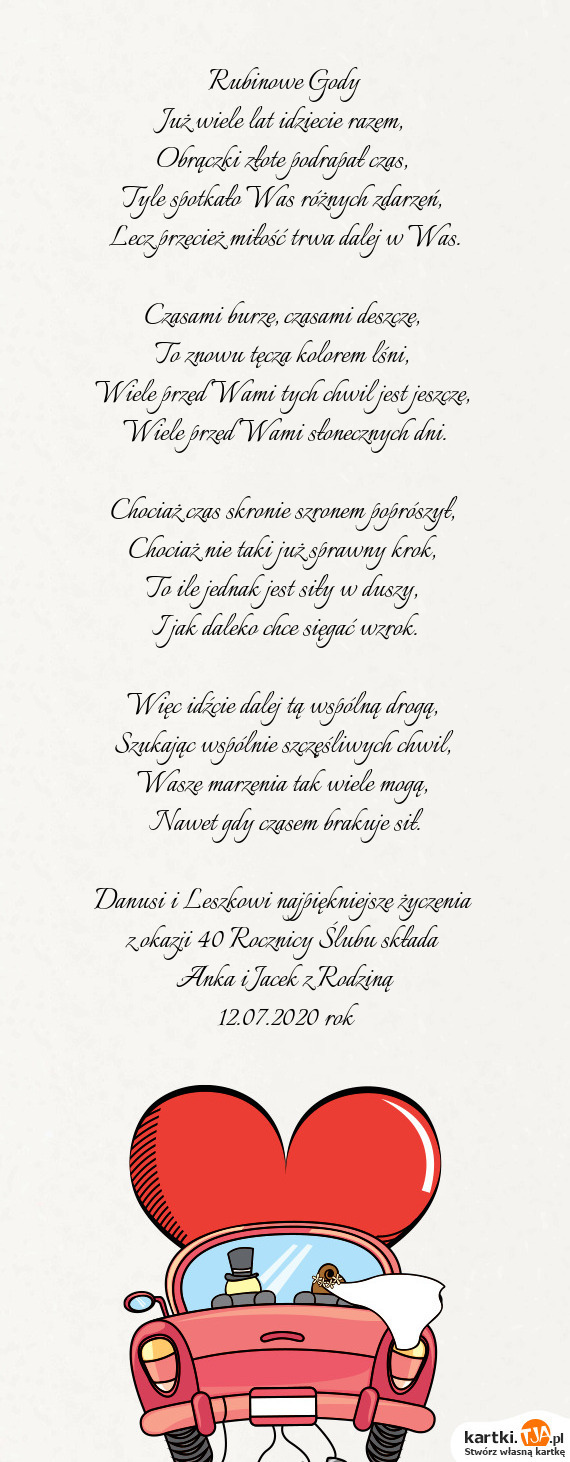 Rubinowe Gody
Już wiele lat idziecie razem,
Obrączki złote podrapał czas,
Tyle spotkało Was różnych zdarzeń,
Lecz przecież miłość trwa dalej w Was.

Czasami burze, czasami deszcze,
To znowu tęcza kolorem lśni,
Wiele przed Wami tych chwil jest jeszcze,
Wiele przed Wami słonecznych dni.

Chociaż czas skronie szronem poprószył,
Chociaż nie taki już sprawny krok,
To ile jednak jest siły w duszy,
I jak daleko chce sięgać wzrok.

Więc idźcie dalej tą wspólną drogą,
Szukając wspólnie szczęśliwych chwil,
Wasze marzenia tak wiele mogą,
Nawet gdy czasem brakuje sił.

Danusi i Leszkowi najpiękniejsze życzenia
z okazji 40 Rocznicy Ślubu składa
Anka i Jacek z Rodziną
12.07.2020 rok

kartki.TJA.pl
Stwórz własną kartkę